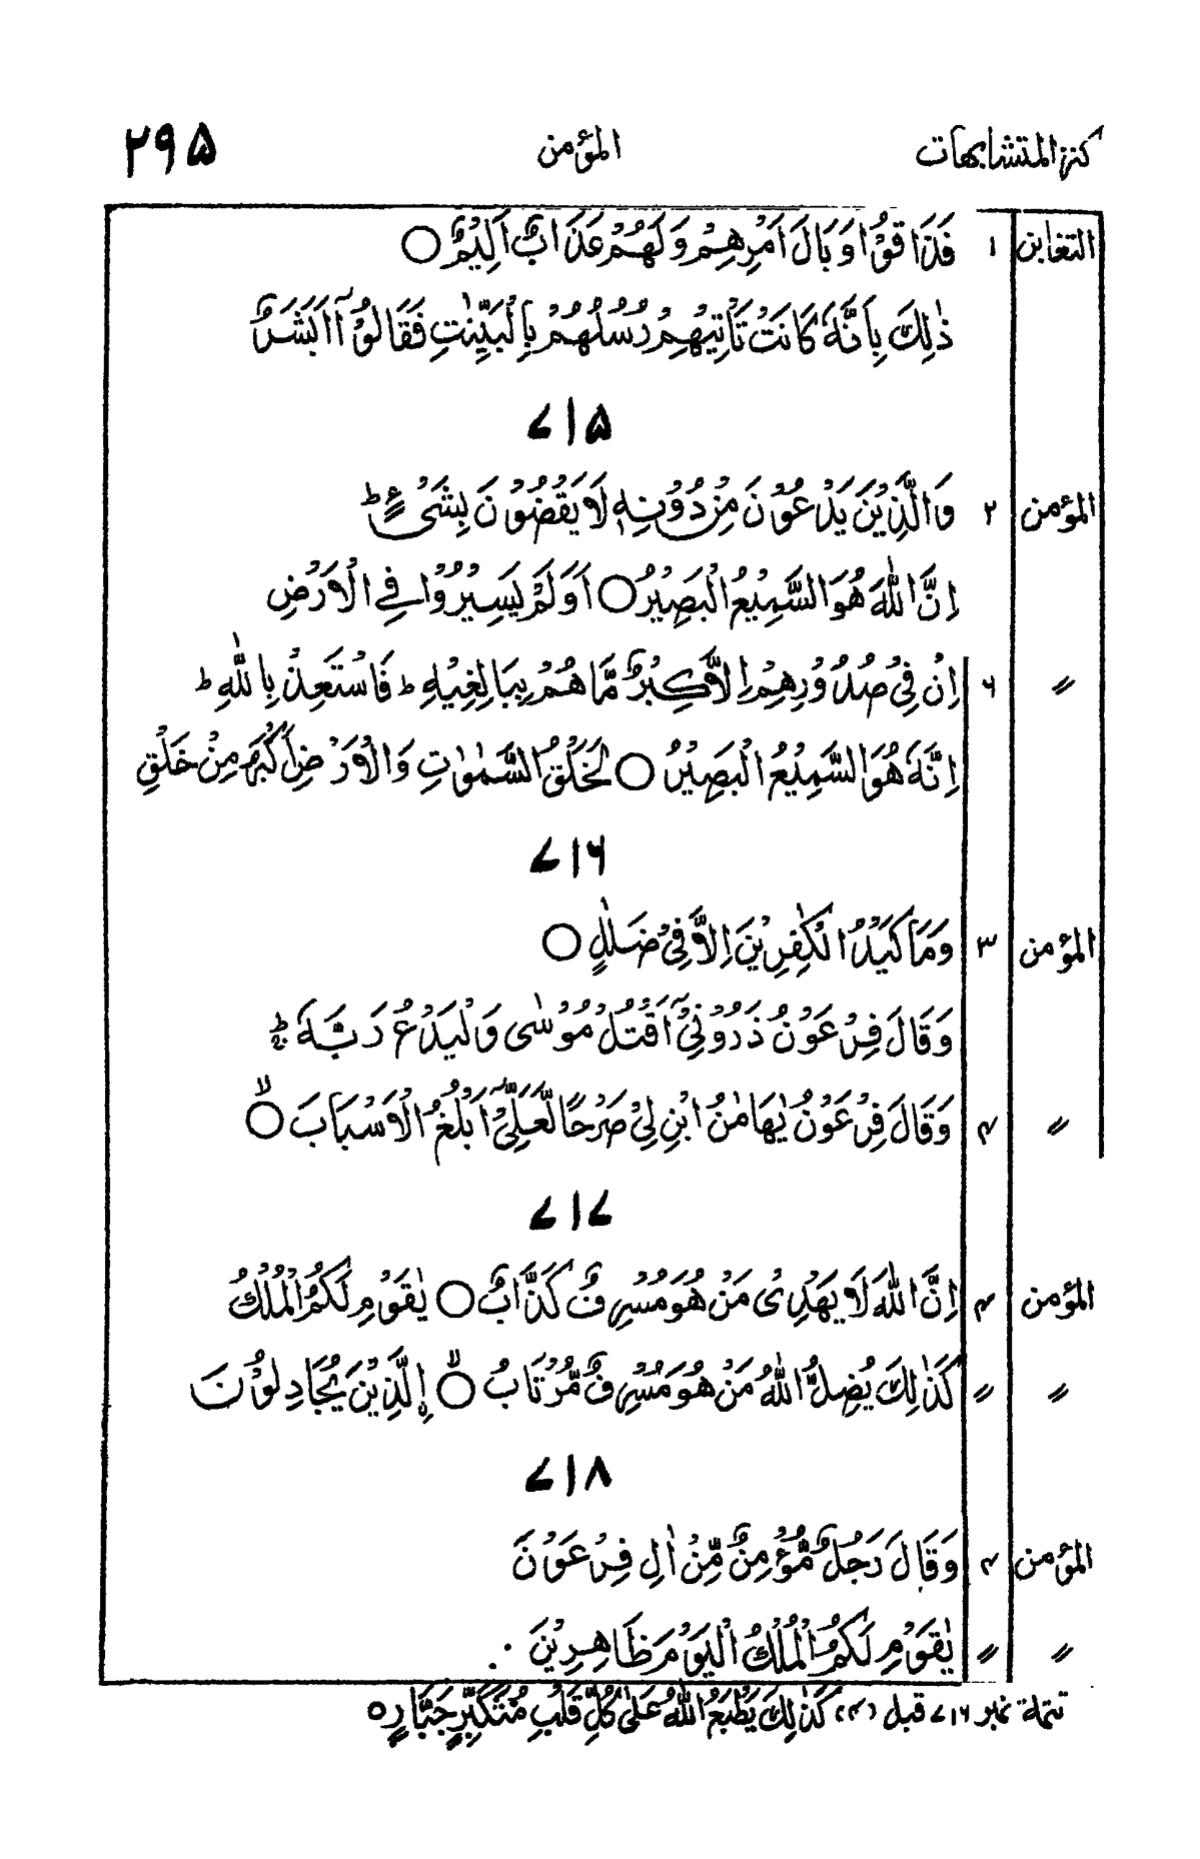 كنز المتشابهات المؤمن ٢٩٥
التغابن ١ فَذَاقُوْا وَبَالَ اَمْرِهِمْ وَلَهُمْ عَذَابٌ اَلِيْمٌ ○
ذٰلِكَ بِاَنَّهٗ كَانَتْ تَاْتِيْهِمْ رُسُلُهُمْ بِالْبَيِّنٰتِ فَقَالُوْٓا اَبَشَرٌ
٧١٥
المؤمن ٢ وَالَّذِيْنَ يَدْعُوْنَ مِنْ دُوْنِهٖ لَا يَقْضُوْنَ بِشَىْءٍ ؕ
اِنَّ اللّٰهَ هُوَ السَّمِيْعُ الْبَصِيْرُ ○ اَوَلَمْ يَسِيْرُوْا فِي الْاَرْضِ
〃 ٦ اِنْ فِيْ صُدُوْرِهِمْ اِلَّا كِبْرٌ مَّا هُمْ بِبَالِغِيْهِ ؕ فَاسْتَعِذْ بِاللّٰهِ ؕ
اِنَّهٗ هُوَ السَّمِيْعُ الْبَصِيْرُ ○ لَخَلْقُ السَّمٰوٰتِ وَالْاَرْضِ اَكْبَرُ مِنْ خَلْقِ
٧١٦
المؤمن ٣ وَمَا كَيْدُ الْكٰفِرِيْنَ اِلَّا فِيْ ضَلٰلٍ ○
وَقَالَ فِرْعَوْنُ ذَرُوْنِيْٓ اَقْتُلْ مُوْسٰى وَلْيَدْعُ رَبَّهٗ ۚ
〃 ۴ وَقَالَ فِرْعَوْنُ يٰهَامٰنُ ابْنِ لِيْ صَرْحًا لَّعَلِّيْٓ اَبْلُغُ الْاَسْبَابَ ○ۙ
٧١٧
المؤمن ۴ اِنَّ اللّٰهَ لَا يَهْدِيْ مَنْ هُوَ مُسْرِفٌ كَذَّابٌ ○ يٰقَوْمِ لَكُمُ الْمُلْكُ
〃 〃 كَذٰلِكَ يُضِلُّ اللّٰهُ مَنْ هُوَ مُسْرِفٌ مُّرْتَابُ ○ۙ اِلَّذِيْنَ يُجَادِلُوْنَ
٧١٨
المؤمن ۴ وَقَالَ رَجُلٌ مُّؤْمِنٌ مِّنْ اٰلِ فِرْعَوْنَ
〃 〃 يٰقَوْمِ لَكُمُ الْمُلْكُ الْيَوْمَ ظَاهِرِيْنَ ۰
تتملة نمبر ٧١٦ قبل (۴) كَذٰلِكَ يَطْبَعُ اللّٰهُ عَلٰى كُلِّ قَلْبِ مُتَكَبِّرٍ جَبَّارٍ ○